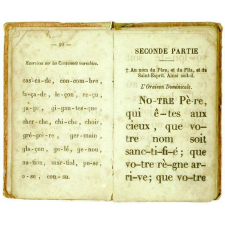 — 20 —
Exercices sur les Consonnes variables.
cas-ca-de, con-com-bre,
fa-ça-de, le-çon, re-çu
gi-gan-tes-que
cher-che, chi-che, choir,
ger-main,
mar-tial,
SECONDE PARTIE
† Au nom du Père, et du Fils, et du
Saint-Esprit. Ainsi soit-il.
L'Oraison Dominicale.
NO-TRE Pè-re,
qui ê-tes aux
cieux, que vo-
tre nom soit
sanc-ti-fi-é; que
vo-tre rè-gne ar-
ri-ve; que vo-tre